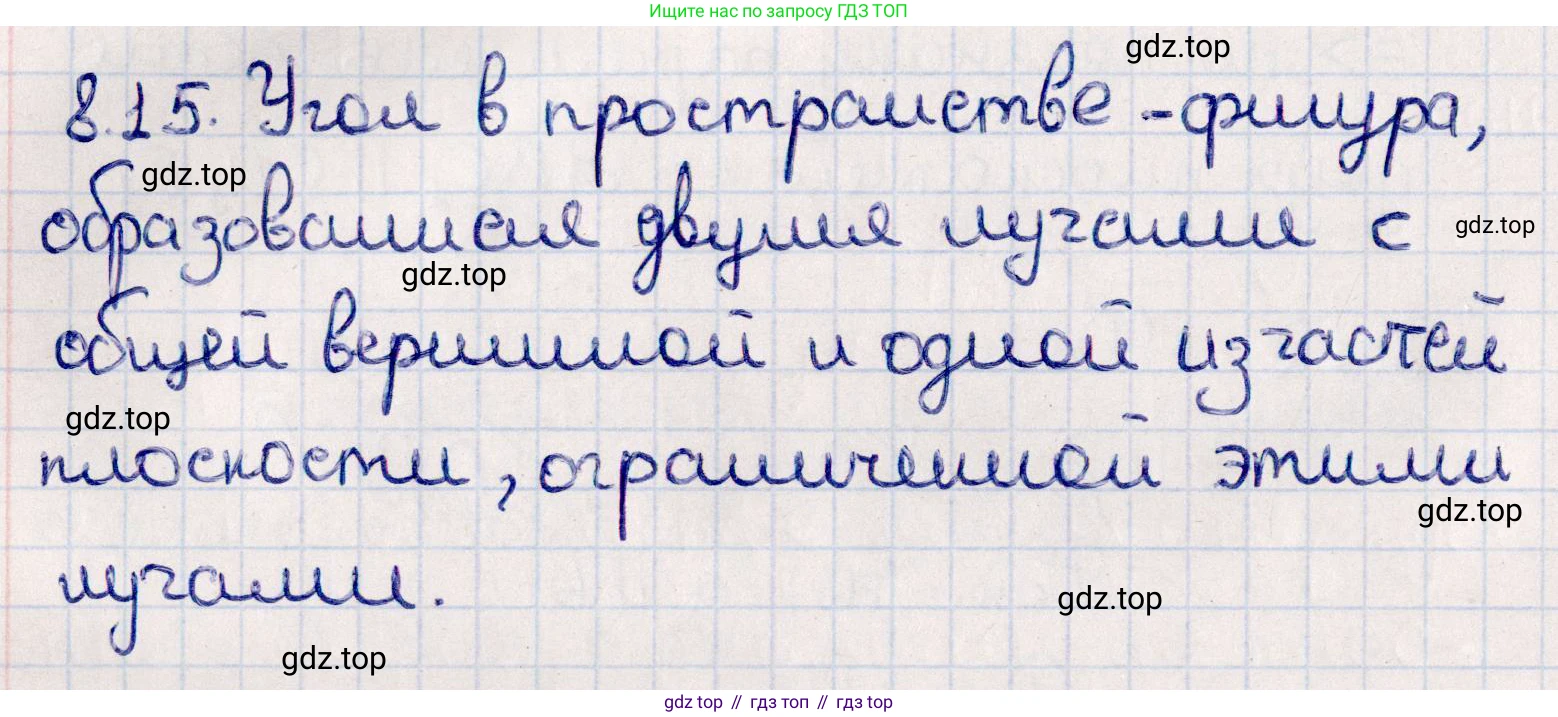 Ищите нас по запросу ГДЗ ТОП
gdz.top
8.15. Угол в пространстве - фигура,
gdz.top
образованная двумя лучами с
gdz.top
gdz.top
общей вершиной и одной из частей
gdz.top
плоскости, ограниченной этими
gdz.top
лучами.
gdz.top
gdz.top
gdz top // гдз топ // гдз top